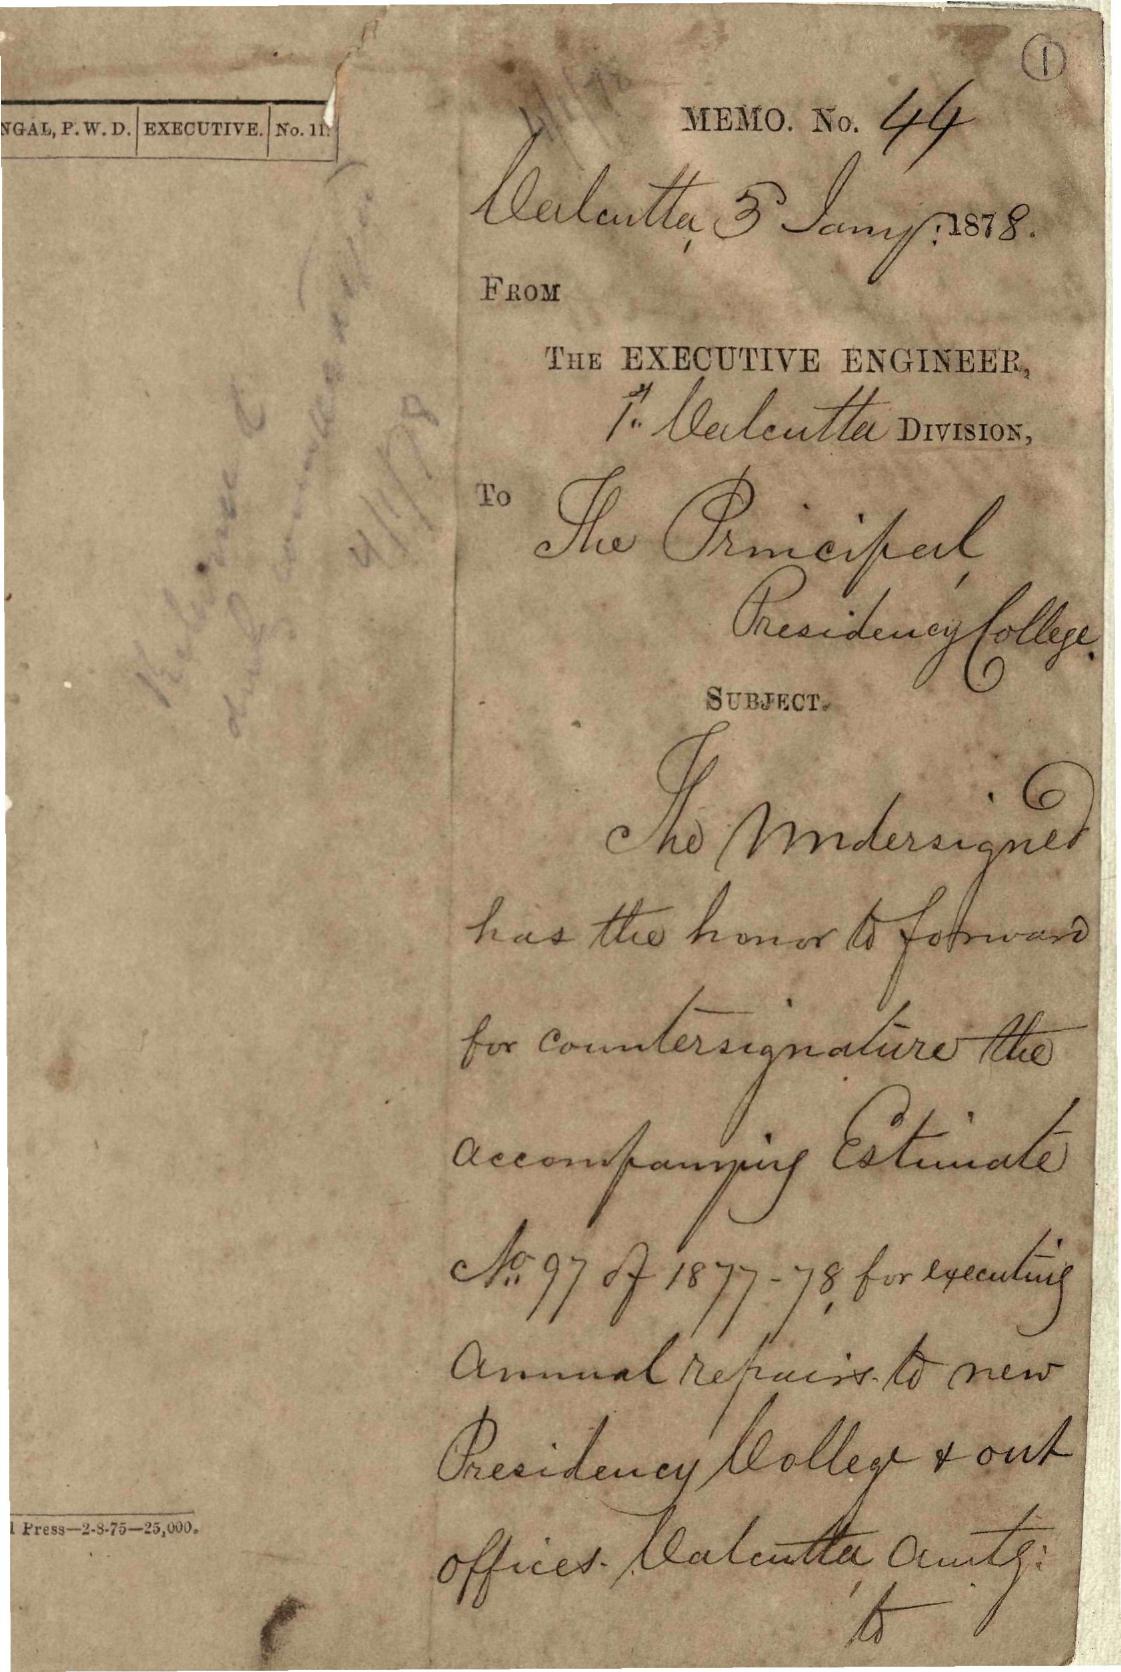 ①
NGAL, P. W. D. EXECUTIVE. No. 11.
MEMO. No. 44
Calcutta, 5 Jany: 1878.
FROM
THE EXECUTIVE ENGINEER,
1st Calcutta DIVISION,
To The Principal,
Presidency College.
SUBJECT.
The Undersigned
has the honor to forward
for countersignature the
accompanying Estimate
No. 97 of 1877-78, for executing
Annual repairs to new
Presidency College & out
offices. Calcutta, amtg:
to
l Press—2-8-75—25,000.